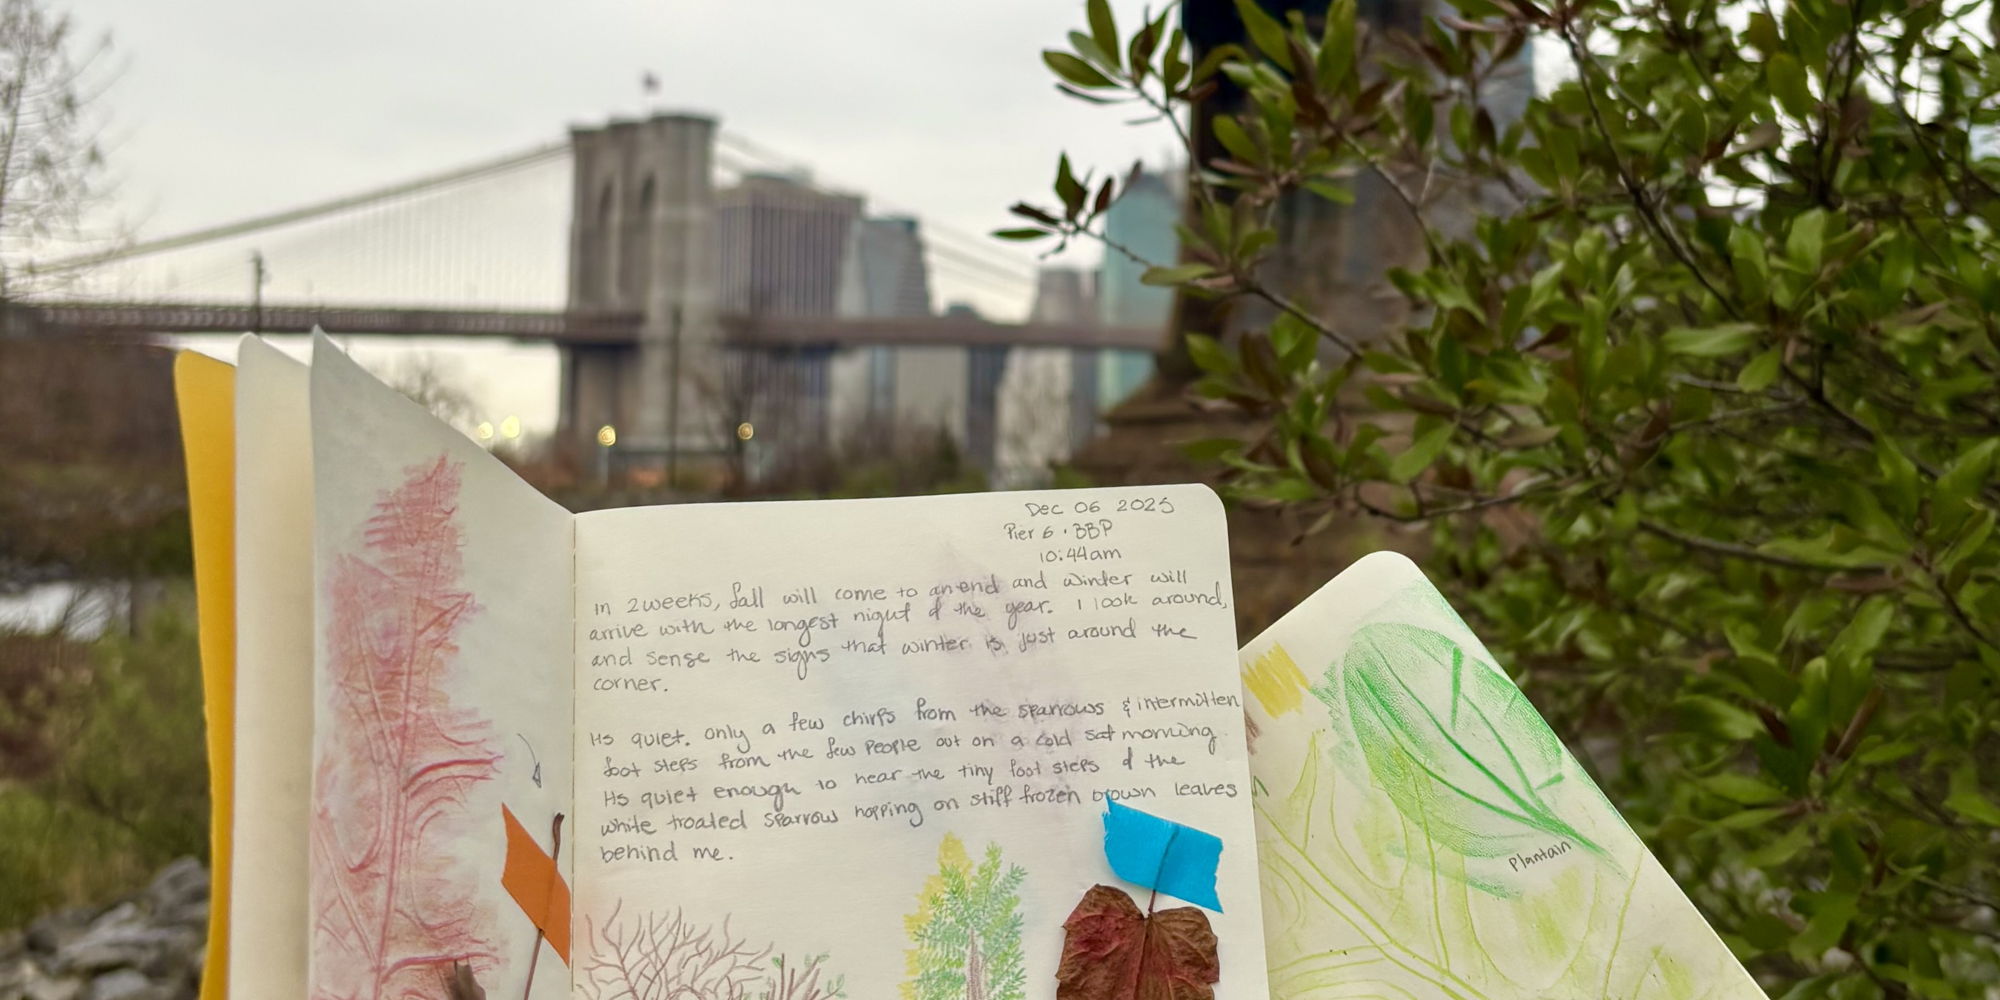 Dec 06 2025
Pier 6 · BBP
10:44am
in 2 weeks, fall will come to an end and winter will
arrive with the longest night of the year. I look around,
and sense the signs that winter is just around the
corner.
Its quiet. only a few chirps from the sparrows & intermitten
foot steps from the few people out on a cold sat morning.
Its quiet enough to hear the tiny foot steps of the
white troated sparrow hopping on stiff frozen brown leaves
behind me.
Plantain